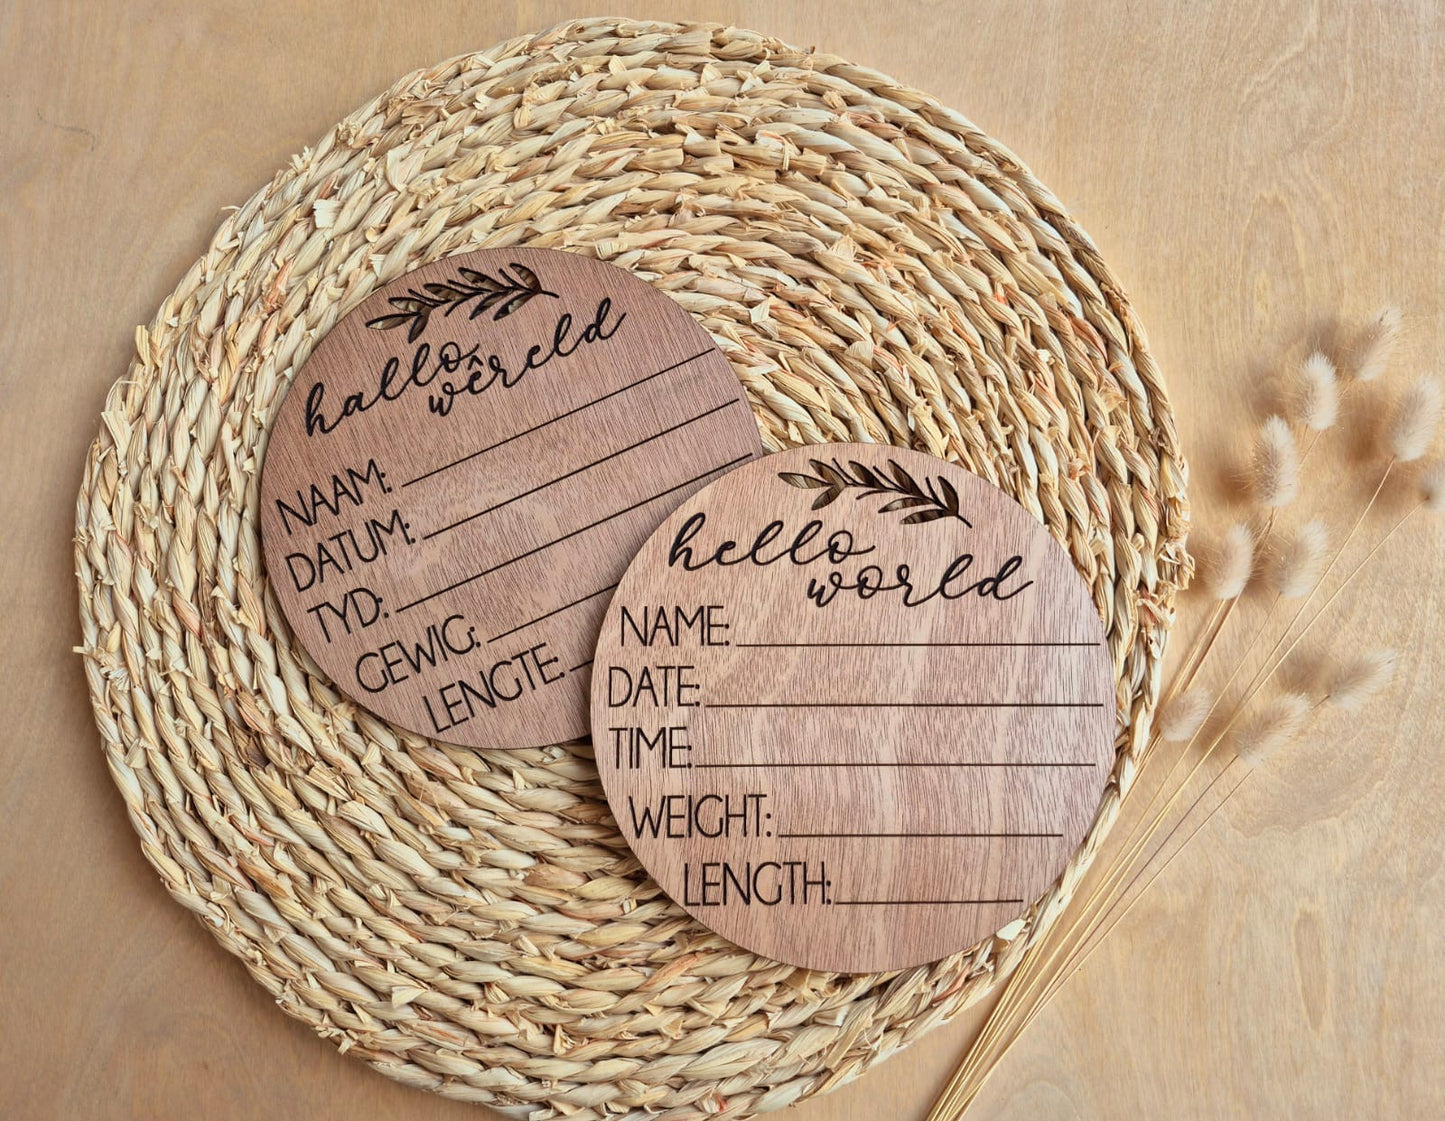 hallo
wêreld
NAAM:
DATUM:
TYD:
GEWIG:
LENGTE:
hello
world
NAME:
DATE:
TIME:
WEIGHT:
LENGTH: